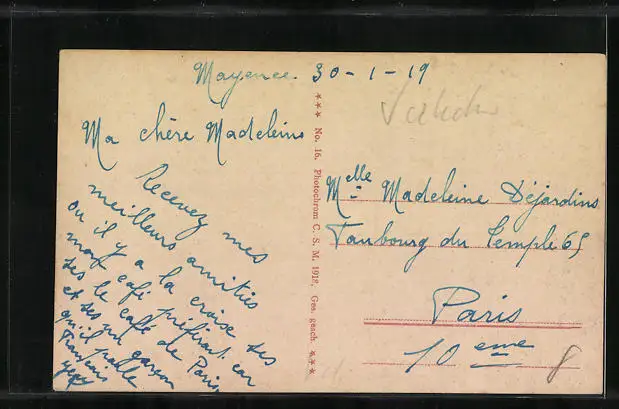 Mayence. 30-1-19
Ma chère Madeleine
Recevez mes
meilleurs amitiés
ou il y a la croise ses
mon café préférant car
ses le café de Paris
et ses un garson
qu'il parlle
français
*** No. 16. Photochrom C. S. M. 1912, Ges. gesch. ***
Melle Madeleine Déjardins
Faubourg du Temple 65
Paris
10 eme
8